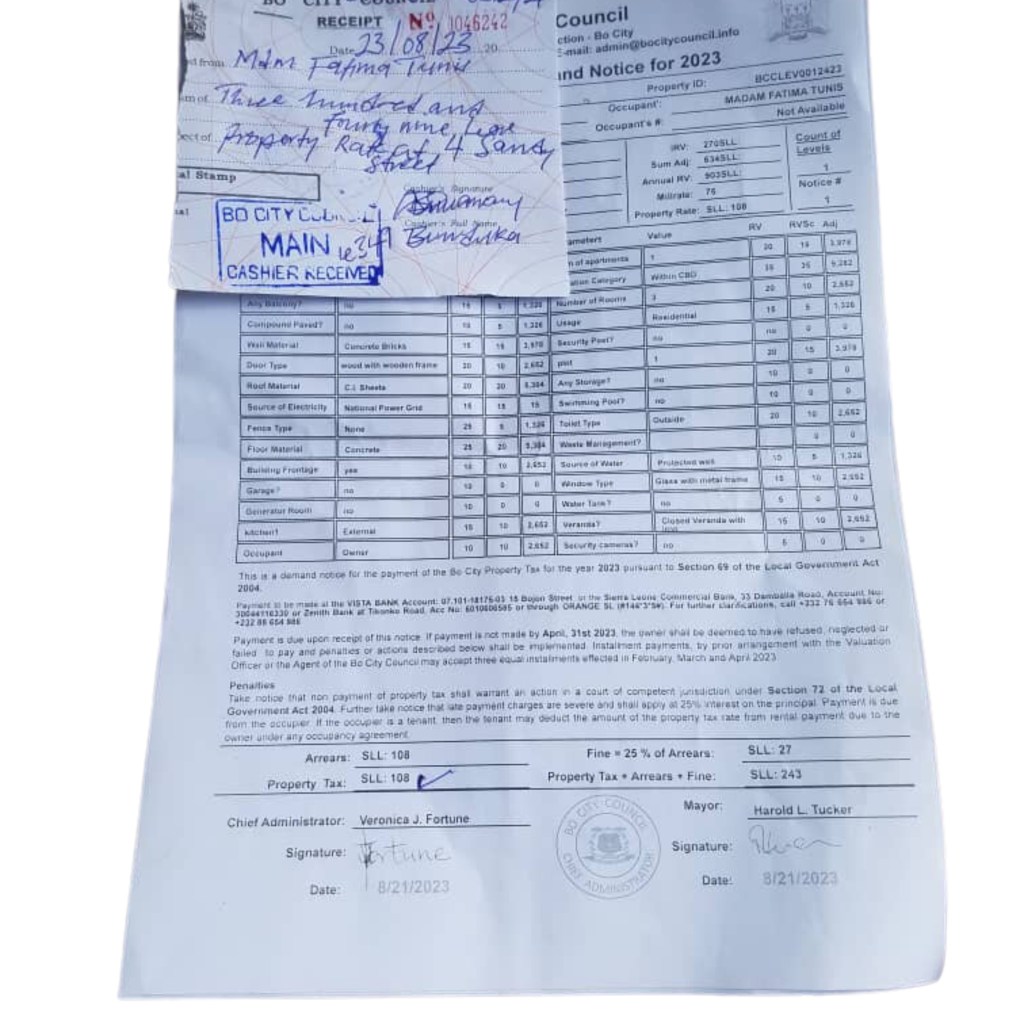 BO CITY COUNCIL
RECEIPT No 1046242
Date 23/08/23 20
ed from Mdm Fatima Tunis
um of Three hundred and
Fourty nine Leone
ect of Property Rate at 4 Sandy
Street
al Stamp
Cashier's Signature
Cashier's Full Name
BO CITY COUNCIL
MAIN le349
CASHIER RECEIVED
Council
ction - Bo City
E-mail: admin@bocitycouncil.info
nd Notice for 2023
Property ID: BCCLEV0012423
Occupant': MADAM FATIMA TUNIS
Occupant's #: Not Available
IRV: 270SLL:
Sum Adj: 634SLL:
Annual RV: 903SLL:
Millrate: 76
Property Rate: SLL: 108
Count of
Levels
1
Notice #
1
ameters Value RV RVSc Adj
n of apartments 1 20 15 3,978
ation Category Within CBD 35 35 9,282
Any Balcony? no 15 5 1,326 Number of Rooms 3 20 10 2,652
Compound Paved? no 10 5 1,326 Usage Residential 15 5 1,326
Wall Material Concrete Bricks 15 15 3,978 Security Post? no no 0 0
Door Type wood with wooden frame 20 10 2,652 plot 1 20 15 3,978
Roof Material C.I Sheets 20 20 5,304 Any Storage? no 10 0 0
Source of Electricity National Power Grid 15 15 15 Swimming Pool? no 10 0 0
Fence Type None 25 5 1,326 Toilet Type Outside 20 10 2,652
Floor Material Concrete 25 20 5,304 Waste Management? 0 0
Building Frontage yes 10 10 2,652 Source of Water Protected well 10 5 1,326
Garage? no 10 0 0 Window Type Glass with metal frame 15 10 2,652
Generator Room no 10 0 0 Water Tank? no 5 0 0
kitchen1 External 15 10 2,652 Veranda? Closed Veranda with 15 10 2,652
Occupant Owner 10 10 2,652 Security cameras? no 5 0 0
This is a demand notice for the payment of the Bo City Property Tax for the year 2023 pursuant to Section 69 of the Local Government Act
2004.
Payment to be made at the VISTA BANK Account: 07.101-18175-03 15 Bojon Street, or the Sierra Leone Commercial Bank, 33 Damballa Road, Account No:
30044116330 or Zenith Bank at Tikonko Road, Acc No: 6010606585 or through ORANGE SL (#144*3*5#). For further clarifications, call +232 76 654 986 or
+232 88 654 986
Payment is due upon receipt of this notice. If payment is not made by April, 31st 2023, the owner shall be deemed to have refused, neglected or
failed to pay and penalties or actions described below shall be implemented. Instalment payments, by prior arrangement with the Valuation
Officer or the Agent of the Bo City Council may accept three equal instalments effected in February, March and April 2023
Penalties
Take notice that non payment of property tax shall warrant an action in a court of competent jurisdiction under Section 72 of the Local
Government Act 2004. Further take notice that late payment charges are severe and shall apply at 25% interest on the principal. Payment is due
from the occupier. If the occupier is a tenant, then the tenant may deduct the amount of the property tax rate from rental payment due to the
owner under any occupancy agreement.
Arrears: SLL: 108 Fine = 25 % of Arrears: SLL: 27
Property Tax: SLL: 108 Property Tax + Arrears + Fine: SLL: 243
Chief Administrator: Veronica J. Fortune Mayor: Harold L. Tucker
Signature: Fortune Signature:
Date: 8/21/2023 Date: 8/21/2023
BO CITY COUNCIL
CHIEF ADMINISTRATOR